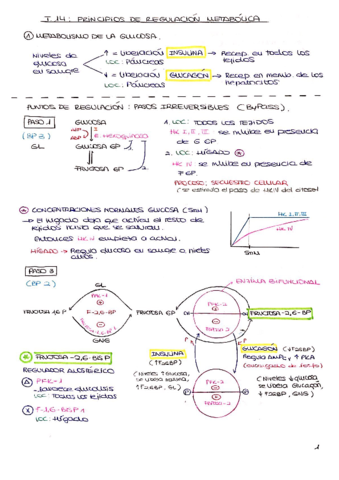 T.14: PRINCIPIOS DE REGULACIÓN METABÓLICA
① METABOLISMO DE LA GLUCOSA.
Niveles de glucosa en sangre
↑ = liberación INSULINA → Recep en todos los tejidos
LOC: Páncreas
↓ = liberación GLUCAGÓN → Recep en menos de los hepatocitos
LOC: Páncreas
PUNTOS DE REGULACIÓN: PASOS IRREVERSIBLES (ByPass).
PASO 1
(BP 3)
GL
GLUCOSA
ATP
ADP
E. Hexoquinasa
GLUCOSA 6P
FRUCTOSA 6P
1. LOC: TODOS LOS TEJIDOS
HK I, II, III se inhibe en presencia de G 6P
2. LOC: HÍGADO
HK IV se inhibe en presencia de F 6P.
PROCESO: SECUESTRO CELULAR
CONCENTRACIONES NORMALES GLUCOSA (5mM)
→ El hígado deja que actúen el resto de tejidos hasta que se saturan.
Entonces HK IV empieza a actuar.
HÍGADO → Regula glucosa en sangre a niveles
HK I, II, III
HK IV
5mM
PASO 3
(BP 2)
GL
PFK-1
FRUCTOSA 1,6 P
F-2,6-BP
FRUCTOSA 6P
GNG
ENZIMA BIFUNCIONAL
PFK-2
FRUCTOSA-2,6-BP
FRUCTOSA-2,6-BisP
REGULADOR ALOSTÉRICO
PFK-1
→ favorece glucólisis
LOC: Todos los tejidos
F-1,6-BisP 1
LOC: Hígado
INSULINA
(↑F26BP)
(Niveles ↑glucosa, se libera insulina, ↑F26BP, GL)
PFK-2
GLUCAGÓN (↓F26BP)
Regula AMPc y ↑ PKA
(Niveles ↓ glucosa se libera Glucagón, ↓F26BP, GNG)
1